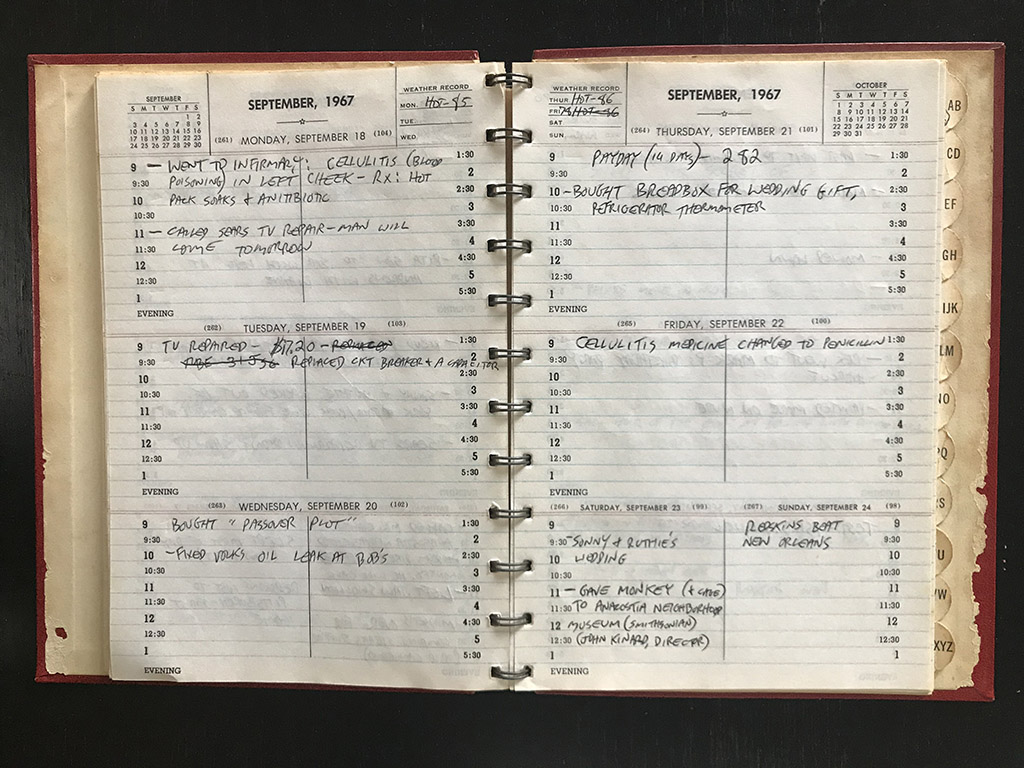 SEPTEMBER
S M T W T F S
1 2
3 4 5 6 7 8 9
10 11 12 13 14 15 16
17 18 19 20 21 22 23
24 25 26 27 28 29 30
SEPTEMBER, 1967
WEATHER RECORD
MON. HOT-85
TUE.
WED.
(261) MONDAY, SEPTEMBER 18 (104)
9 – WENT TO INFIRMARY: CELLULITIS (BLOOD 1:30
9:30 POISONING) IN LEFT CHEEK – RX: HOT 2
10 PACK SOAKS & ANITIBIOTIC 2:30
10:30 3
11 – CALLED SEARS TV REPAIR – MAN WILL 3:30
11:30 COME TOMORROW 4
12 4:30
12:30 5
1 5:30
EVENING
(262) TUESDAY, SEPTEMBER 19 (103)
9 TV REPAIRED – $17.20 – REPLACED 1:30
9:30 REPLACED CKT BREAKER & A CAPACITOR 2
10 2:30
10:30 3
11 3:30
11:30 4
12 4:30
12:30 5
1 5:30
EVENING
(263) WEDNESDAY, SEPTEMBER 20 (102)
9 BOUGHT "PASSOVER PLOT" 1:30
9:30 2
10 – FIXED VOLKS OIL LEAK AT BOB'S 2:30
10:30 3
11 3:30
11:30 4
12 4:30
12:30 5
1 5:30
EVENING
WEATHER RECORD
THUR HOT-86
FRI HOT-86
SAT
SUN.
SEPTEMBER, 1967
OCTOBER
S M T W T F S
1 2 3 4 5 6 7
8 9 10 11 12 13 14
15 16 17 18 19 20 21
22 23 24 25 26 27 28
29 30 31
(264) THURSDAY, SEPTEMBER 21 (101)
9 PAYDAY (14 DAYS) – 282 1:30
9:30 2
10 – BOUGHT BREADBOX FOR WEDDING GIFT, 2:30
10:30 REFRIGERATOR THERMOMETER 3
11 3:30
11:30 4
12 4:30
12:30 5
1 5:30
EVENING
(265) FRIDAY, SEPTEMBER 22 (100)
9 CELLULITIS MEDICINE CHANGED TO PENICILLIN 1:30
9:30 2
10 2:30
10:30 3
11 3:30
11:30 4
12 4:30
12:30 5
1 5:30
EVENING
(266) SATURDAY, SEPTEMBER 23 (99)
9
9:30 – SONNY & RUTHIE'S
10 WEDDING
10:30
11 – GAVE MONKEY (& CAGE)
11:30 TO ANACOSTIA NEIGHBORHOOD
12 MUSEUM (SMITHSONIAN)
12:30 (JOHN KINARD, DIRECTOR)
1
EVENING
(267) SUNDAY, SEPTEMBER 24 (98)
REDSKINS BEAT 9
NEW ORLEANS 9:30
10
10:30
11
11:30
12
12:30
1
AB
CD
EF
GH
IJK
LM
NO
PQ
RS
U
VW
XYZ